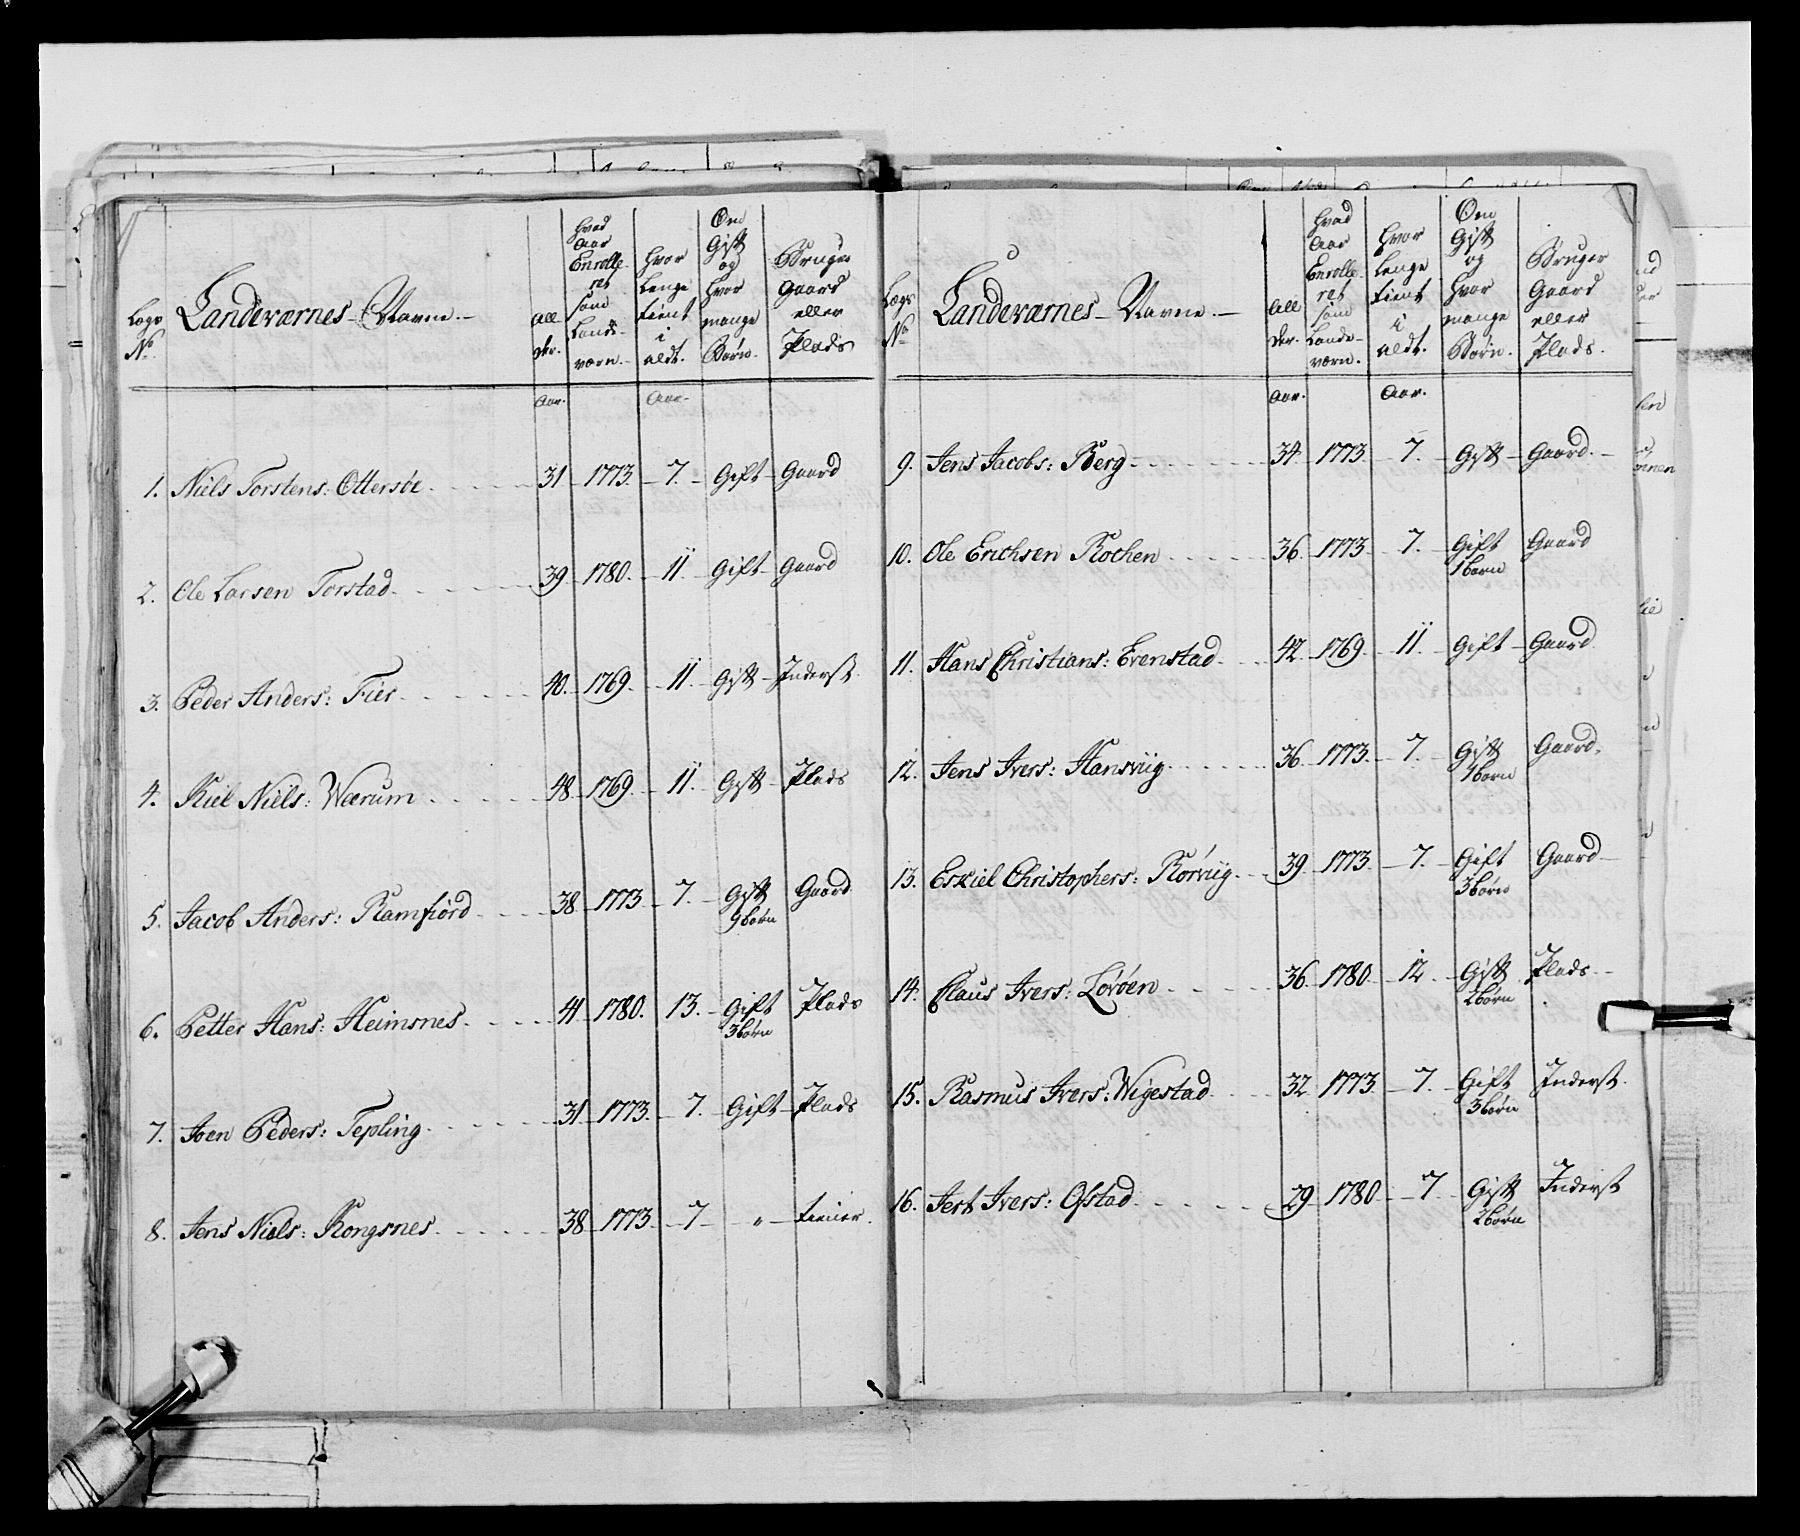 Legs No. Landeværnes Navne. Allder. hvad Aar Enrolleret som Landeværn. hvor Lenge tient i aldt. Om Gift og hvor mange Børn. Bruger Gaard eller Plads
Aar. Aar.
1. Niels Torstens: Ottersøe 31 1773. 7. Gift Gaard
2. Ole Larsen Torstad 39 1780. 11. Gift Gaard
3. Peder Anders: Fier 40. 1769. 11. Gift Inderst
4. Kiel Niels: Wærum 48 1769. 11. Gift Plads
5. Jacob Anders: Ramfiord 38 1773 7. Gift Gaard
9 børn
6. Petter Hans: Heimsnes 41 1780. 13. Gift Plads
3 børn
7. Joen Peders: Tepling 31 1773. 7. Gift Plads
8. Jens Niels: Kongsnes 38 1773 7 " tiener.
Legs No. Landeværnes Navne. Allder. hvad Aar Enrolleret som Landeværn. hvor lenge tient i aldt. Om Gift og hvor mange Børn. Bruger Gaard eller Plads.
Aar. Aar.
9. Jens Jacobs: Berg 34 1773 7. Gift Gaard.
10. Ole Erichsen Rochen 36 1773 7. Gift Gaard
1 barn
11. Hans Christians: Evenstad 42 1769. 11. Gift Gaard
12. Jens Ivers: Hansviig 36 1773. 7. Gift Gaard.
1 barn
13. Eskiel Christophers: Rørviig 39 1773 7. Gift Gaard
3 børn
14. Claus Ivers: Lørøen 36 1780 12. Gift Plads
2 børn
15. Rasmus Ivers: Wigestad 32 1773 7. Gift Inderst.
3 børn
16. Jert Ivers: Ofstad 29 1780 7 Gift Inderst
2 børn